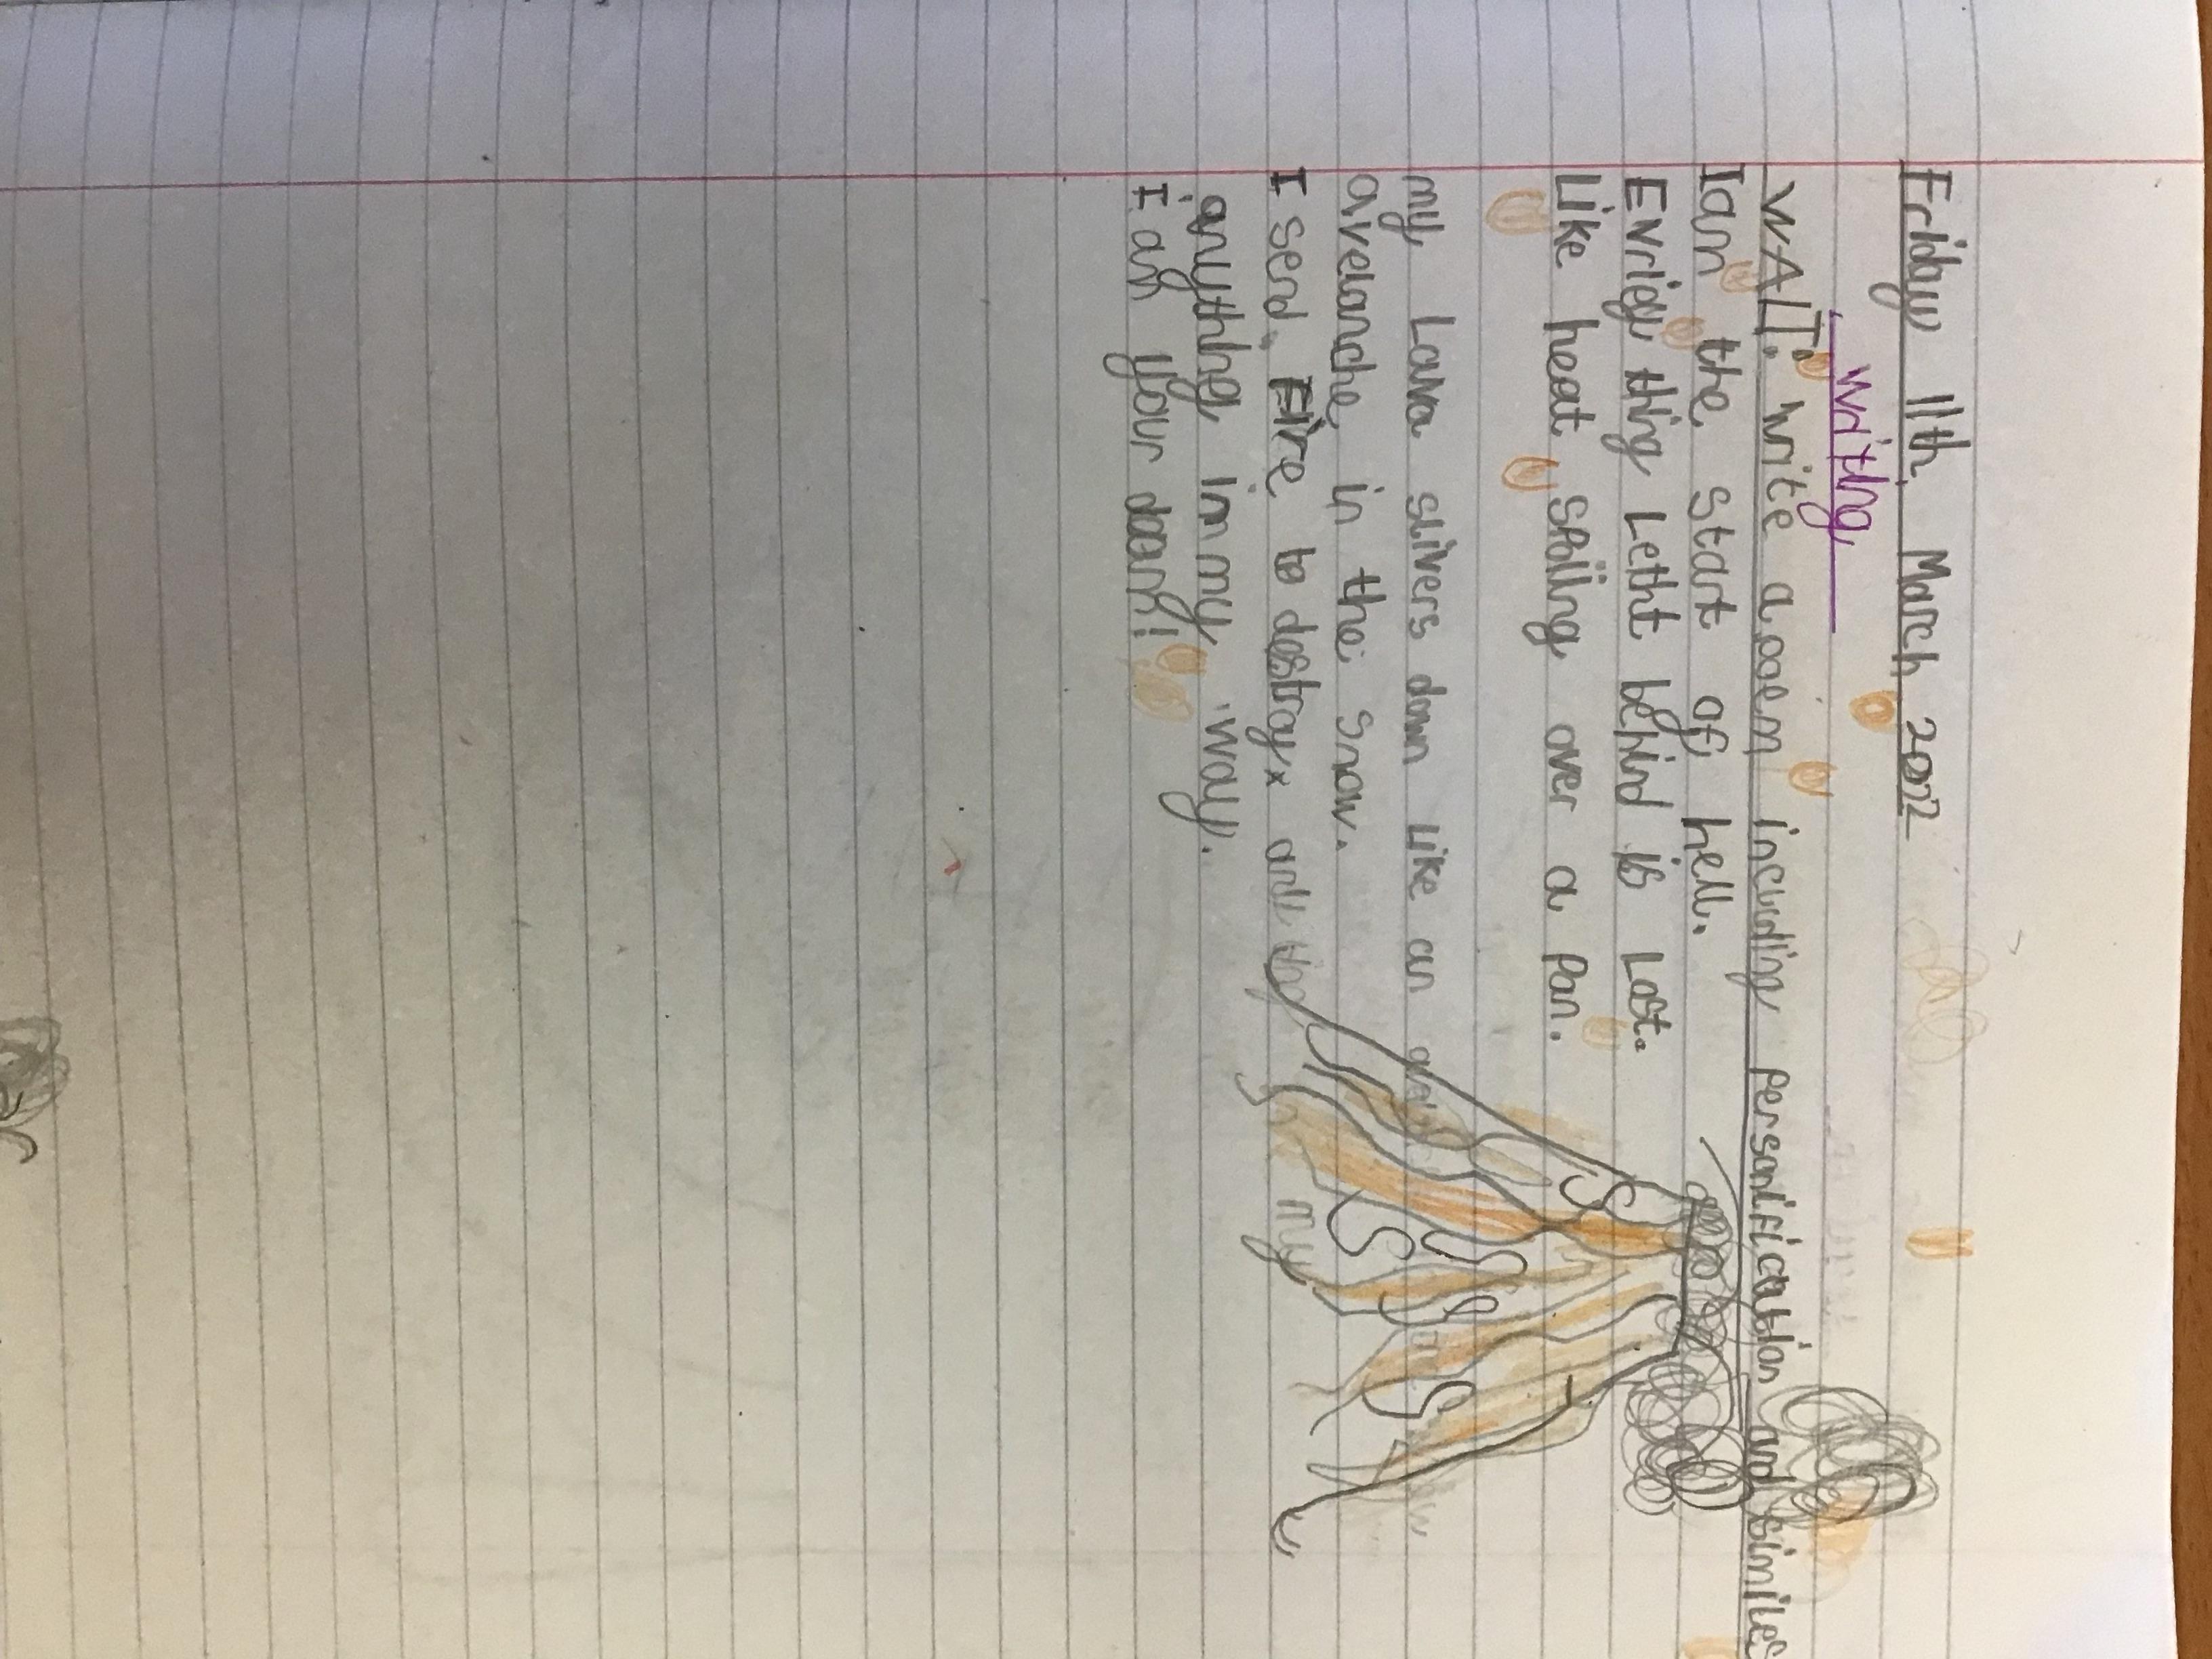 Friday 11th March 2022
writing
WALT: write a poem including personification and similes
I am the start of hell.
Evrięy thing Letht behind is Lost.
Like heat spoiling over a pan.
my Lava slivers down like an
avelanche in the snow.
I send Fire to destroy and
anything in my way.
I am your doom!